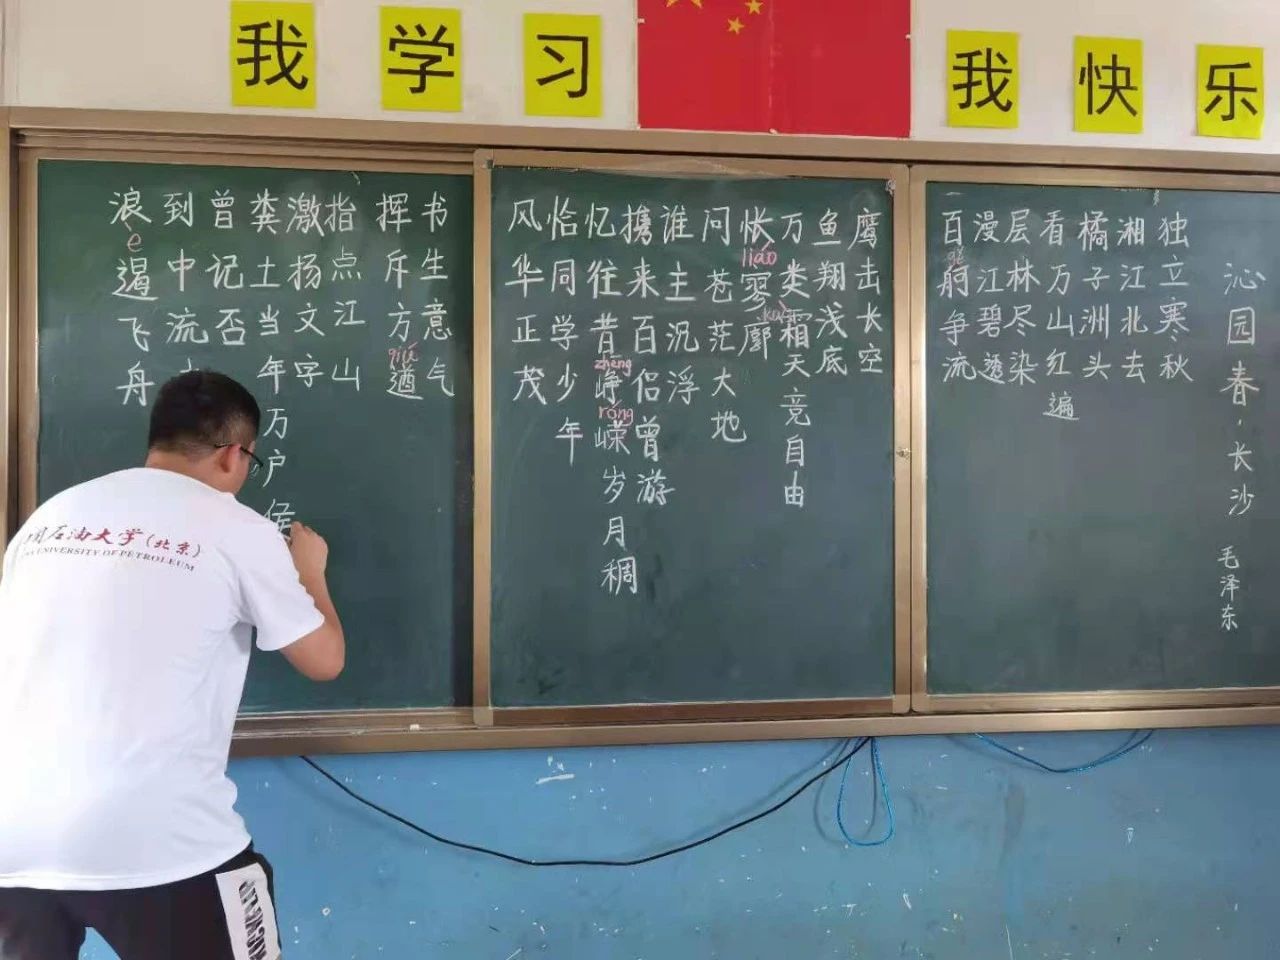 我学习
我快乐
沁园春·长沙
毛泽东
独立寒秋
湘江北去
橘子洲头
看万山红遍
层林尽染
漫江碧透
百舸争流
gě
鹰击长空
鱼翔浅底
万类霜天竞自由
怅寥廓
liáo
问苍茫大地
谁主沉浮
携来百侣曾游
忆往昔峥嵘岁月稠
zhēng
róng
恰同学少年
风华正茂
书生意气
挥斥方遒
qiú
指点江山
激扬文字
粪土当年万户侯
曾记否
到中流
浪遏飞舟
è
石油大学(北京)
UNIVERSITY OF PETROLEUM